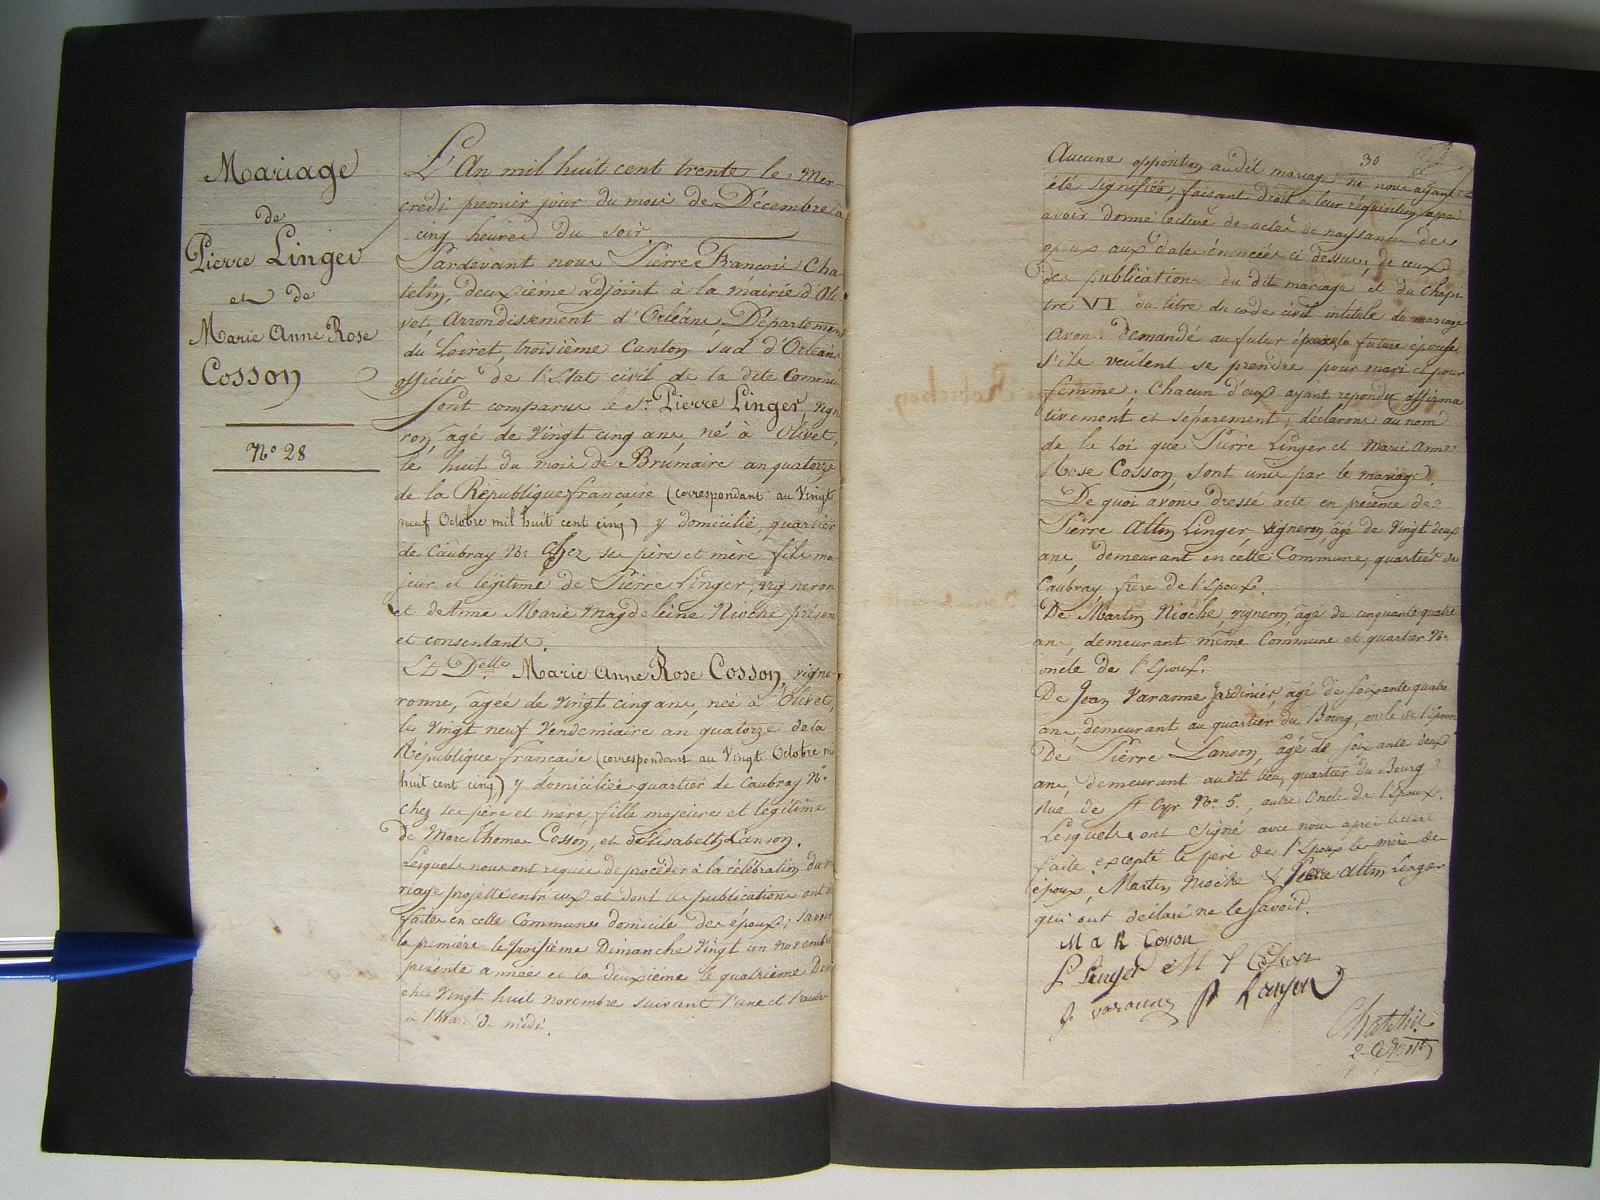 Mariage
de
Pierre Linger
et de
Marie Anne Rose
Cosson
N° 28
L'An mil huit cent trente le Mer-
credi premier jour du mois de Décembre à
cinq heures du soir
Pardevant nous Pierre François Cha
telin, deuxième adjoint à la mairie d'Oli
vet, Arrondissement d'Orléans, Département
du Loiret, troisième Canton sud d'Orléans
officier de l'Etat civil de la dite Commu
Sont comparus le Sr. Pierre Linger, vign
ron, agé de vingt cinq ans, né à Olivet,
le huit du mois de Brumaire an quatorze
de la République française (correspondant au Vingt
neuf Octobre mil huit cent cinq) y domicilié, quartier
de Caubray N°. chez ses père et mère, fils ma
jeur et légitime de Pierre Linger, vigneron
et de Anne Marie Magdeleine Nioche présen
et consentants.
Et Delle Marie Anne Rose Cosson, vigne
ronne, agée de vingt cinq ans, née à Olivet,
le vingt neuf Vendemiaire an quatorze de la
République française (correspondant au Vingt Octobre mil
huit cent cinq) y domiciliée quartier de Caubray N°.
chez ses père et mère, fille majeure et légitime
De Marc Thomas Cosson, et d'Elisabeth Lanson.
Lesquels nous ont requis de procéder à la célébration du ma
riage projetté entr'eux et dont les publications ont été
faites en cette Commune domicile des époux; savoir
la première le troisième Dimanche vingt un novembre
présente année et la deuxième le quatrième Diman
che vingt huit novembre suivant l'une et l'autre
à l'heure de midi.
30
Aucune opposition au dit mariage ne nous ayant
été signifiée, faisant droit à leur réquisition, après
avoir donné lecture des actes de naissance des
époux aux dates énoncées ci dessus, de ceux
de publications du dit mariage et du Chapi
tre VI du titre du code civil intitulé du mariage
Avons demandé au futur époux et la future épouse
s'ils veulent se prendre pour mari et pour
femme; Chacun d'eux ayant repondu affirma
tivement et séparement, déclarons au nom
de la loi que Pierre Linger et Marie Anne
Rose Cosson, sont unis par le mariage.
De quoi avons dressé acte en présence de
Pierre Altin Linger, vigneron, âgé de vingt deux
ans, demeurant en cette Commune, quartier de
Caubray, frère de l'Epoux.
De Martin Nioche, vigneron, agé de cinquante quatre
ans, demeurant même Commune et quartier N°.
oncle de l'Epoux.
De Jean Varanne Jardinier, agé de soixante quatre
ans, demeurant au quartier du Bourg, oncle de l'Epoux
De Pierre Lanson, agé de soixante deux
ans, demeurant au dit lieu, quartier du Bourg
rue de St Cyr N°. 5., autre Oncle de l'Epoux.
Lesquels ont signé avec nous après lecture
faite, excepté le père de l'Epoux la mère de
époux, Martin Nioche & Pierre Altin Linger
qui ont déclaré ne le savoir.
M a R Cosson
P Linger M T Cosson
J. varanne P Lanson
Chatelin
2e Adjoint